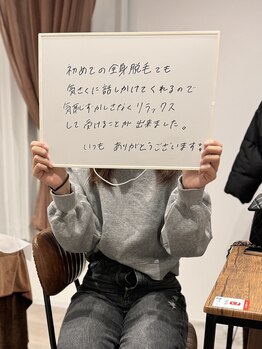 初めての全身脱毛でも
気さくに話しかけてくれるので
気恥しずかしさなくリラックス
して受けることが出来ました。
いつも ありがとうございます。